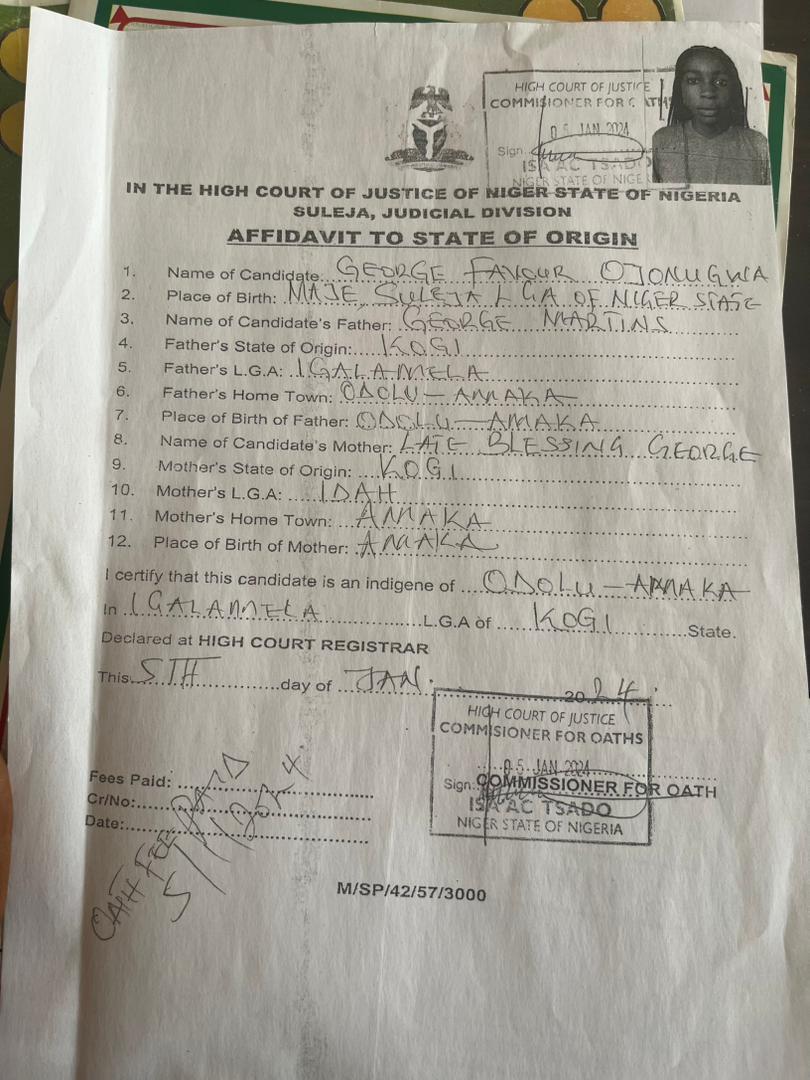 HIGH COURT OF JUSTICE
COMMISIONER FOR OATHS
05 JAN 2024
Sign
ISAAC TSADO
NIGER STATE OF NIGERIA
IN THE HIGH COURT OF JUSTICE OF NIGER STATE OF NIGERIA
SULEJA, JUDICIAL DIVISION
AFFIDAVIT TO STATE OF ORIGIN
1. Name of Candidate: GEORGE FAVOUR OJONUGWA
2. Place of Birth: MAJE, SULEJA LGA OF NIGER STATE
3. Name of Candidate's Father: GEORGE MARTINS
4. Father's State of Origin: KOGI
5. Father's L.G.A: IGALAMELA
6. Father's Home Town: ODOLU-AMAKA
7. Place of Birth of Father: ODOLU-AMAKA
8. Name of Candidate's Mother: LATE BLESSING GEORGE
9. Mother's State of Origin: KOGI
10. Mother's L.G.A: IDAH
11. Mother's Home Town: AMAKA
12. Place of Birth of Mother: AMAKA
I certify that this candidate is an indigene of ODOLU-AMAKA
In IGALAMELA L.G.A of KOGI State.
Declared at HIGH COURT REGISTRAR
This 5TH day of JAN. 2024.
HIGH COURT OF JUSTICE
COMMISIONER FOR OATHS
05 JAN 2024
Sign: COMMISSIONER FOR OATH
ISAAC TSADO
NIGER STATE OF NIGERIA
Fees Paid:
Cr/No:
Date:
OATH FEE PAID
M/SP/42/57/3000